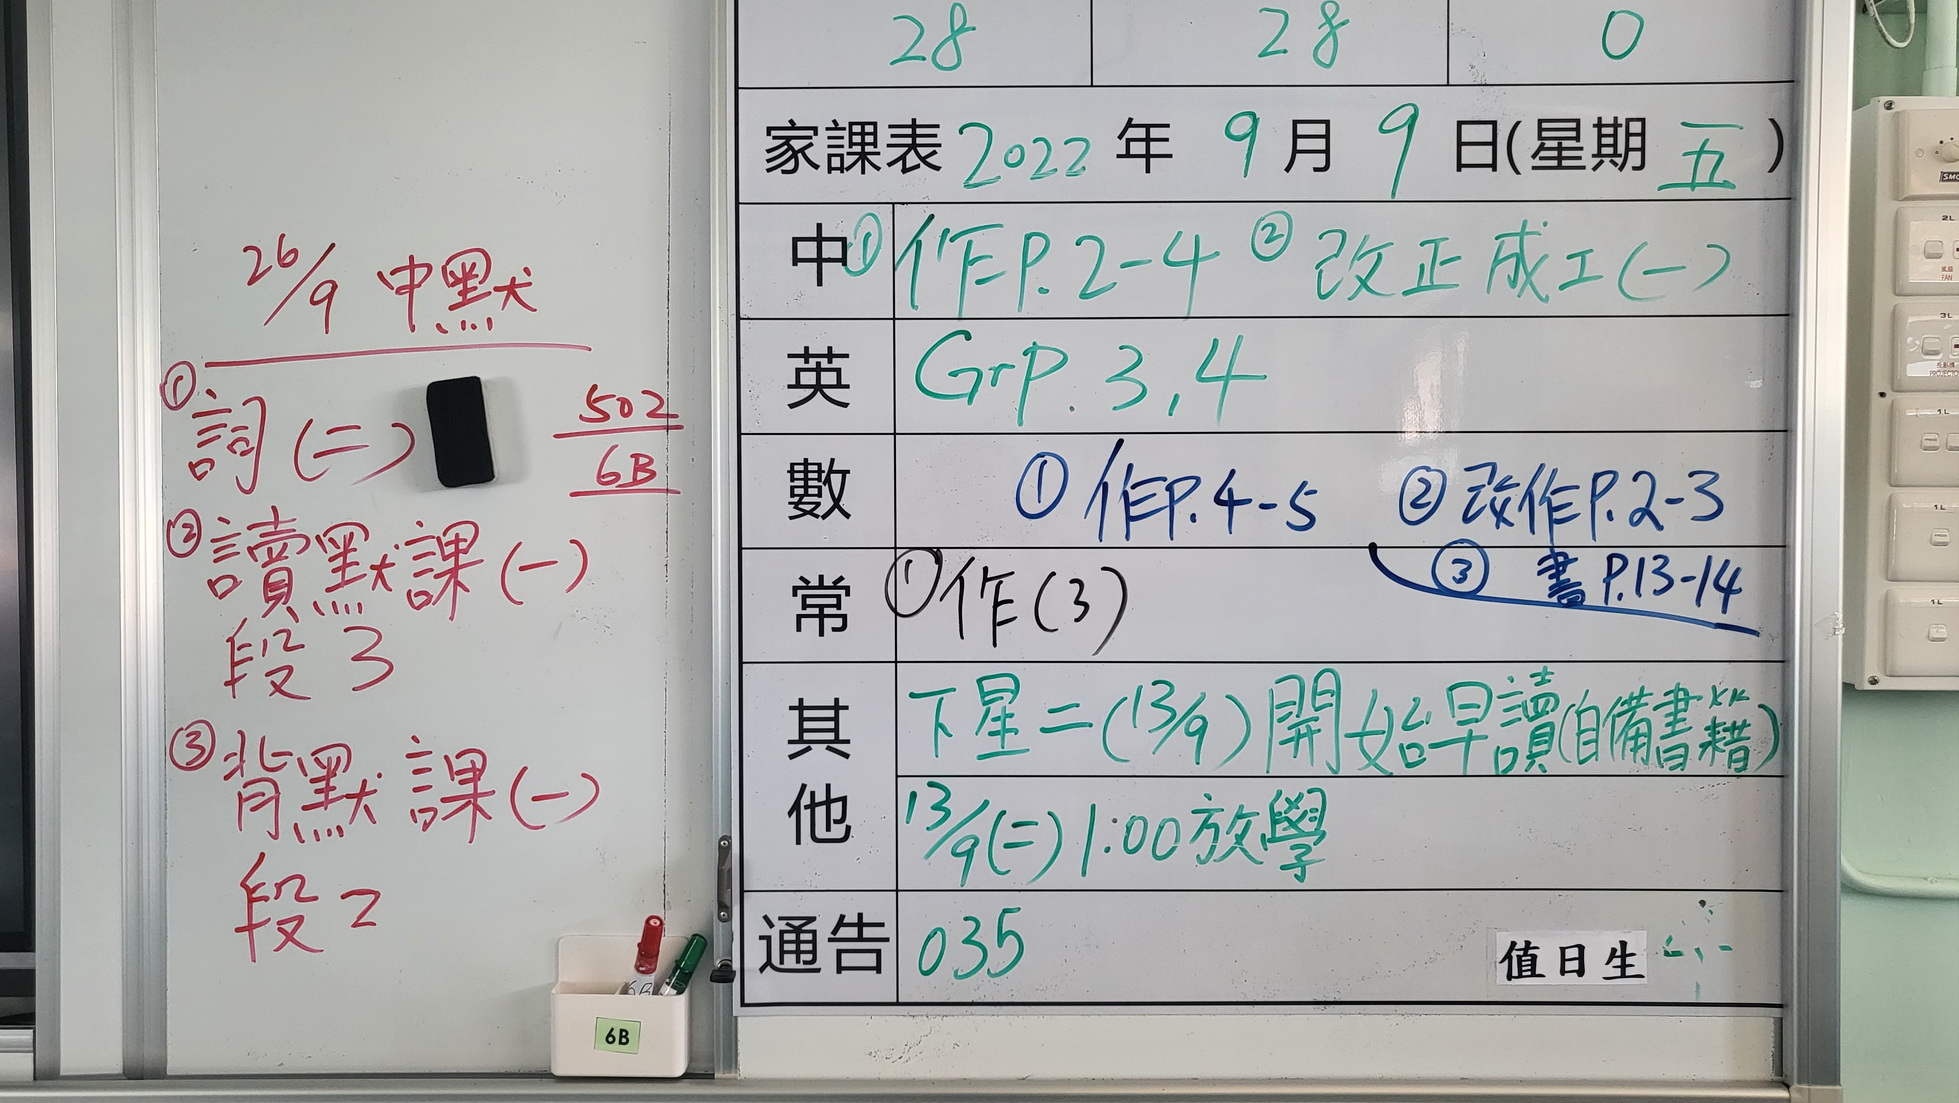 26/9 中默
① 詞(二)
502
6B
② 讀默課(一)
段3
③ 背默課(一)
段2
6B
6B
28 28 0
家課表 2022 年 9 月 9 日(星期 五 )
中 ① 作P.2-4 ② 改正成工(一)
英 GrP.3,4
數 ① 作P.4-5 ② 改作P.2-3
③ 書P.13-14
常 ① 作(3)
其他 下星二(13/9)開始早讀(自備書籍)
13/9(二) 1:00放學
通告 035
值日生
2L
風扇
FAN
3L
1L
1L
1L